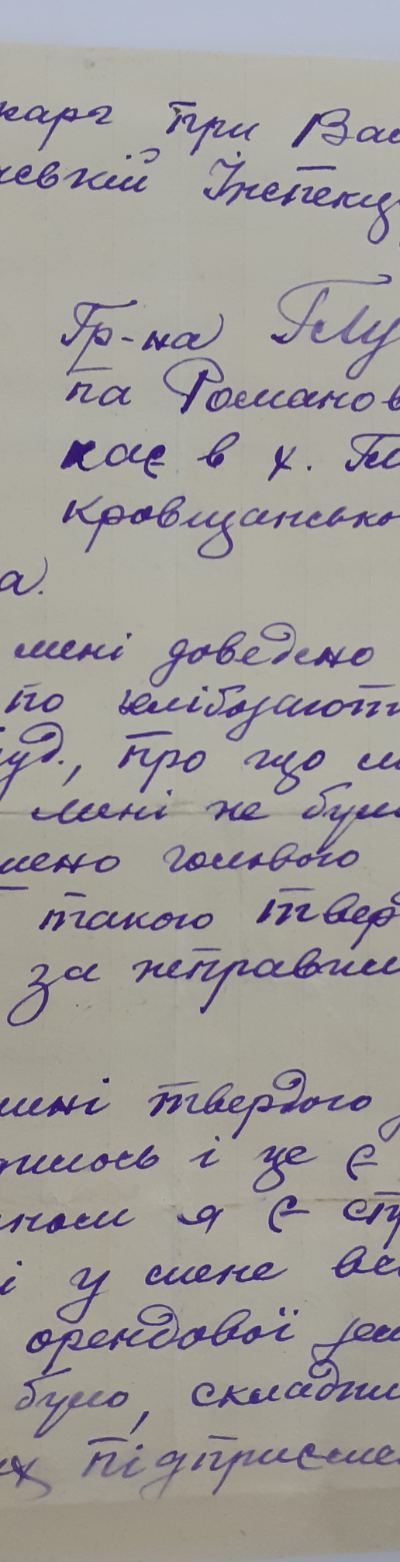 карг при Вас
ській Інспекц
Гр-на Глу
па Романов
кає в х. Гл
кровщансько
а.
мені доведено
по хлібозагот
буд., про що м
мені не було
мено головою
такого твер
за неправил
мені твердого
дилось і це є
ном я є
і у мене вс
орендової зем
було, складж
их підприєме